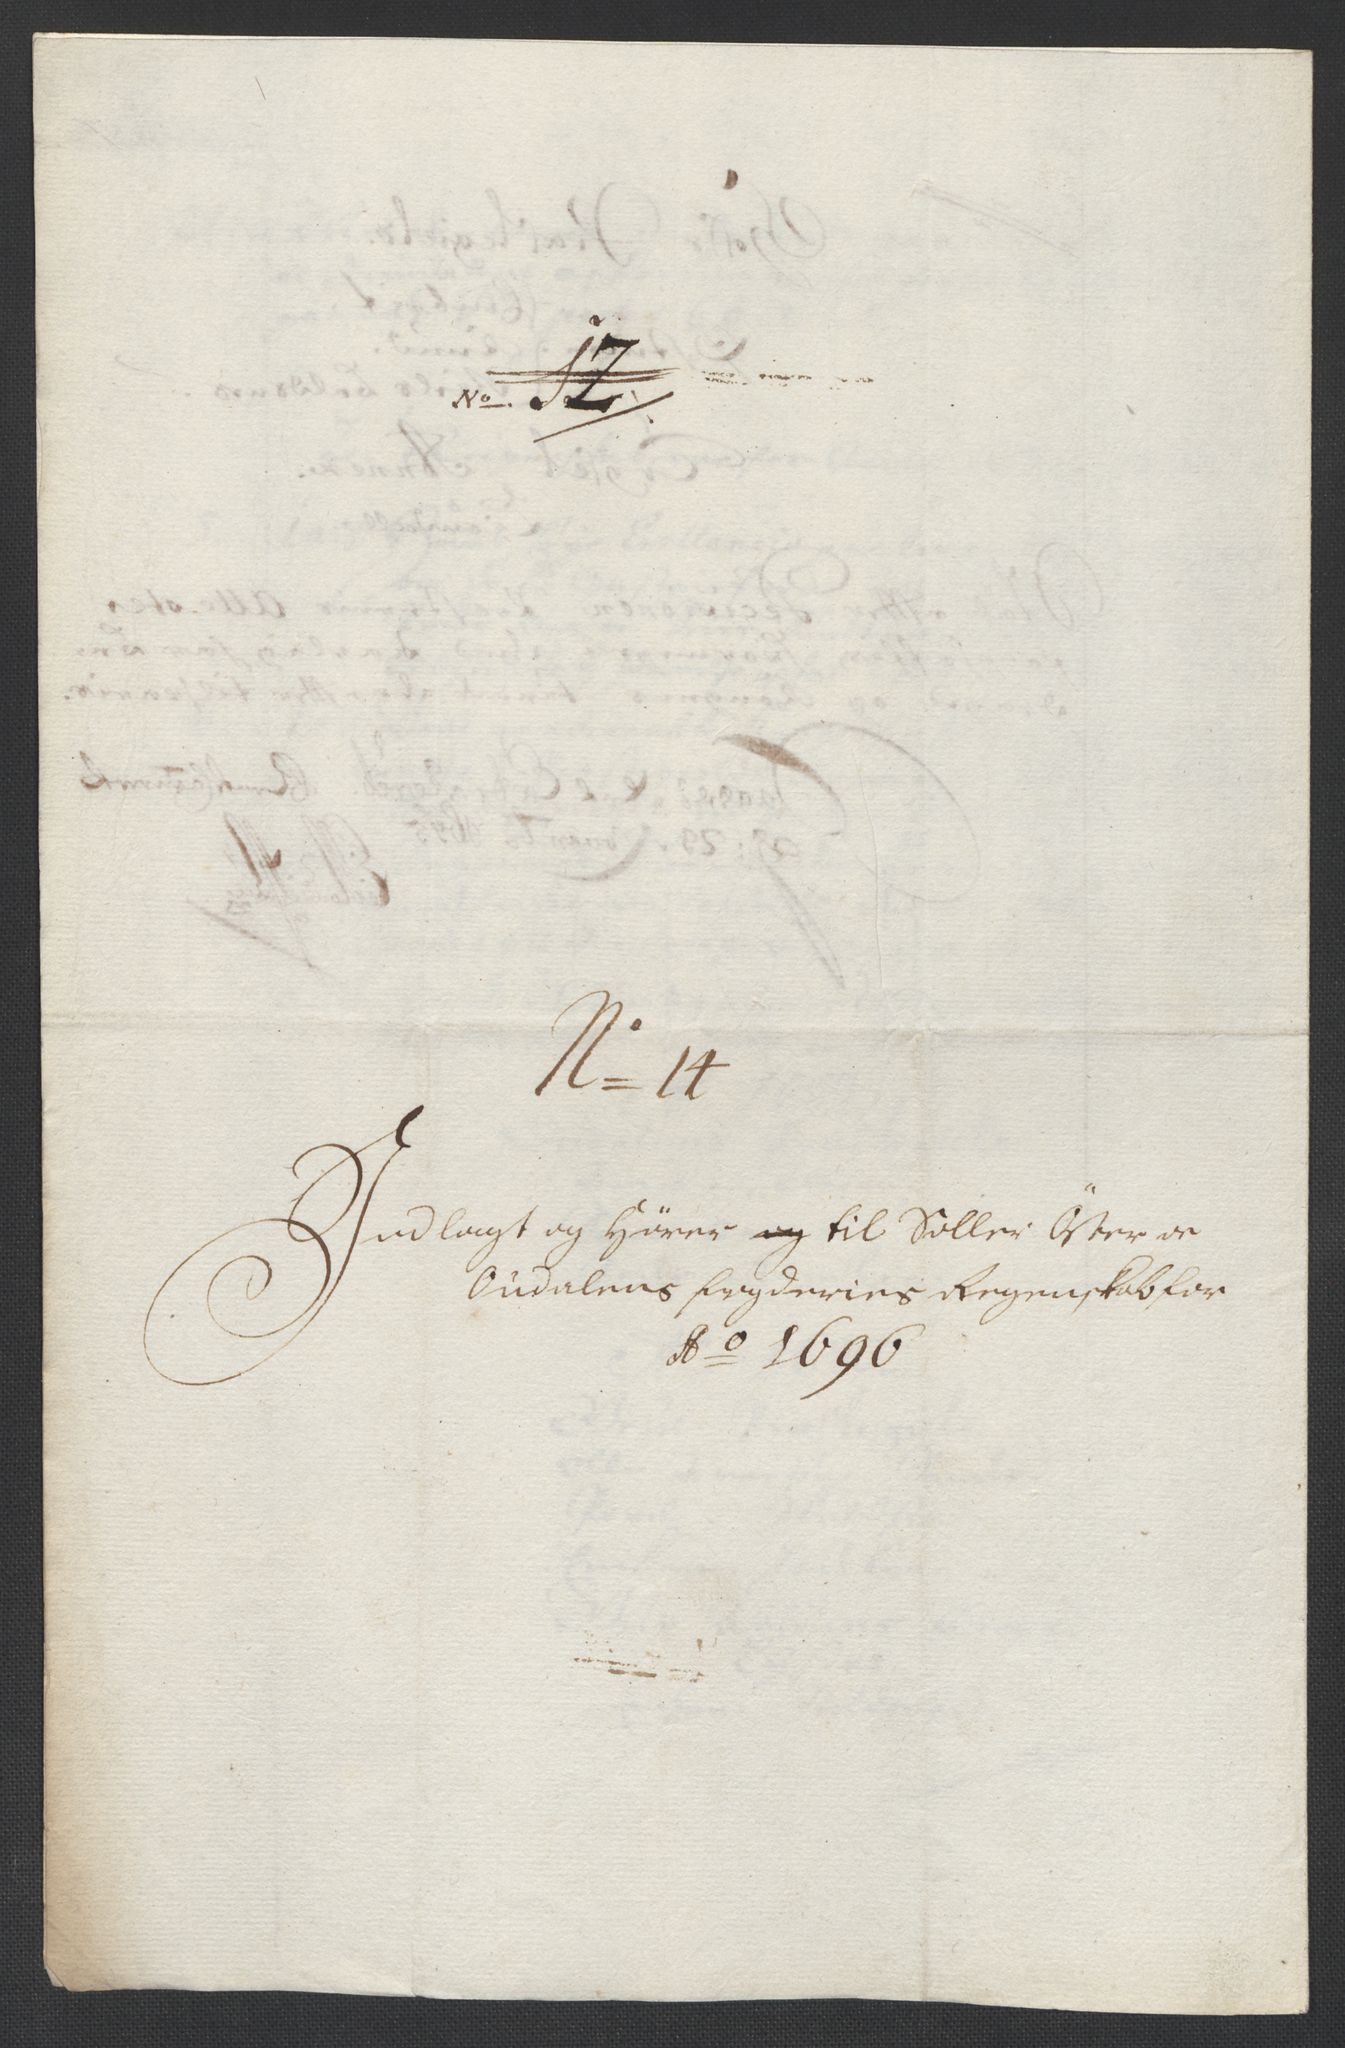 No. 12
No 14
Indlagt og Hører og til Soller Öster oc
Oudalens fogderies Regenskab for
Ao 1696